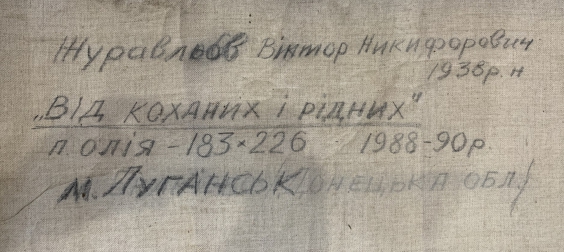 Журавльов Віктор Никифорович
1938р.н
„ВІД КОХАНИХ І РІДНИХ"
п. олія - 183×226 1988-90р.
м. ЛУГАНСЬК ДОНЕЦЬКА ОБЛ.